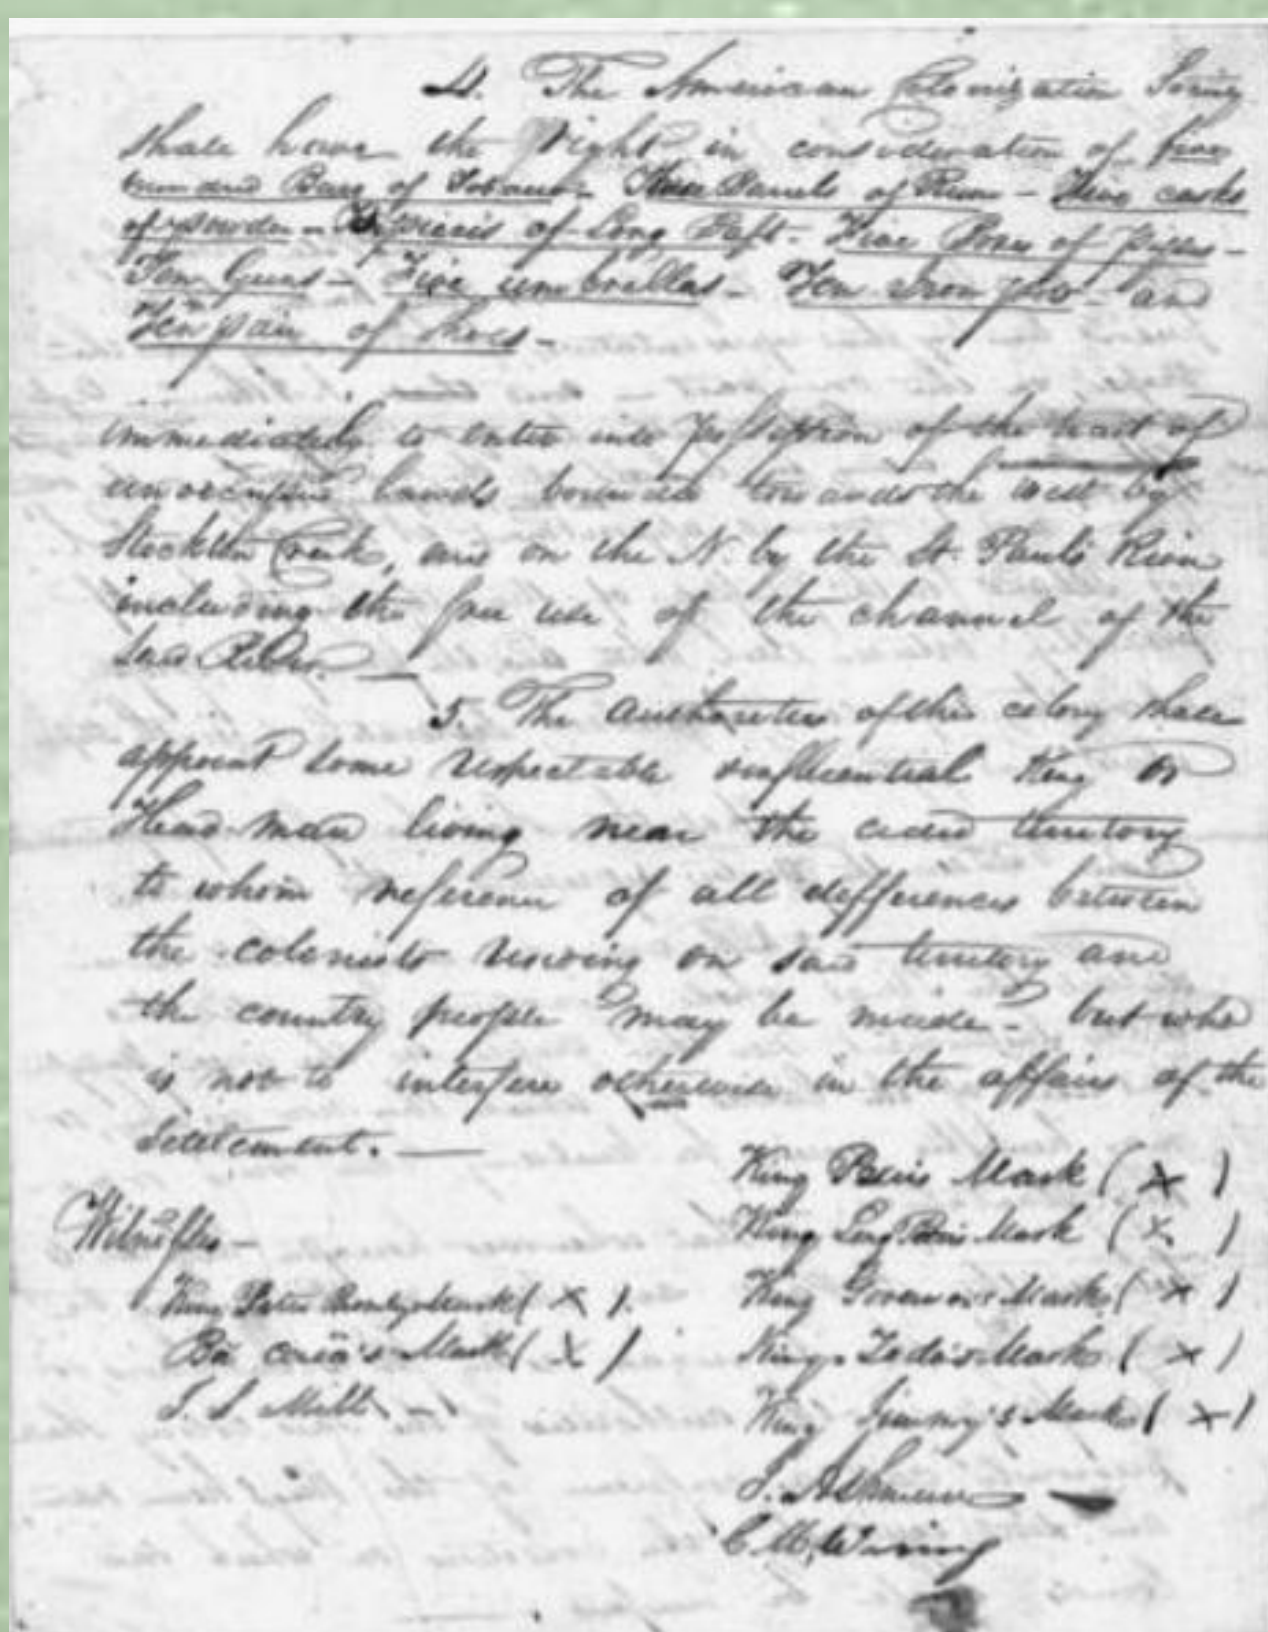 4. The American Colonization Society
shall have the right in consideration of five
hundred Bars of Tobacco - Three Barrels of Rum - Five casks
of Powder - pieces of Long Baft - Five Boxes of pipes -
Ten Guns - Five umbrellas - Ten Iron pots - and
Ten pair of shoes -
immediately to enter into possession of the tract of
unoccupied lands bounded towards the west by
Stockton Creek, and on the N. by the St. Paul's River
including the free use of the channel of the
said River. —
5. The authorities of this colony shall
appoint some respectable & influential King or
Head-man living near the ceded territory
to whom reference of all differences between
the colonists residing on said territory and
the country people may be made - but who
is not to interfere otherwise in the affairs of the
settlement. —
King Peter's Mark ( X )
King Long Peter's Mark ( X )
King Governor's Mark ( X )
King Zoda's Mark ( X )
King Jimmy's Mark ( X )
J. Ashmun
C. M. Waring
Witnesses -
King Peter Mark ( X ).
Ba Caia's Mark ( X )